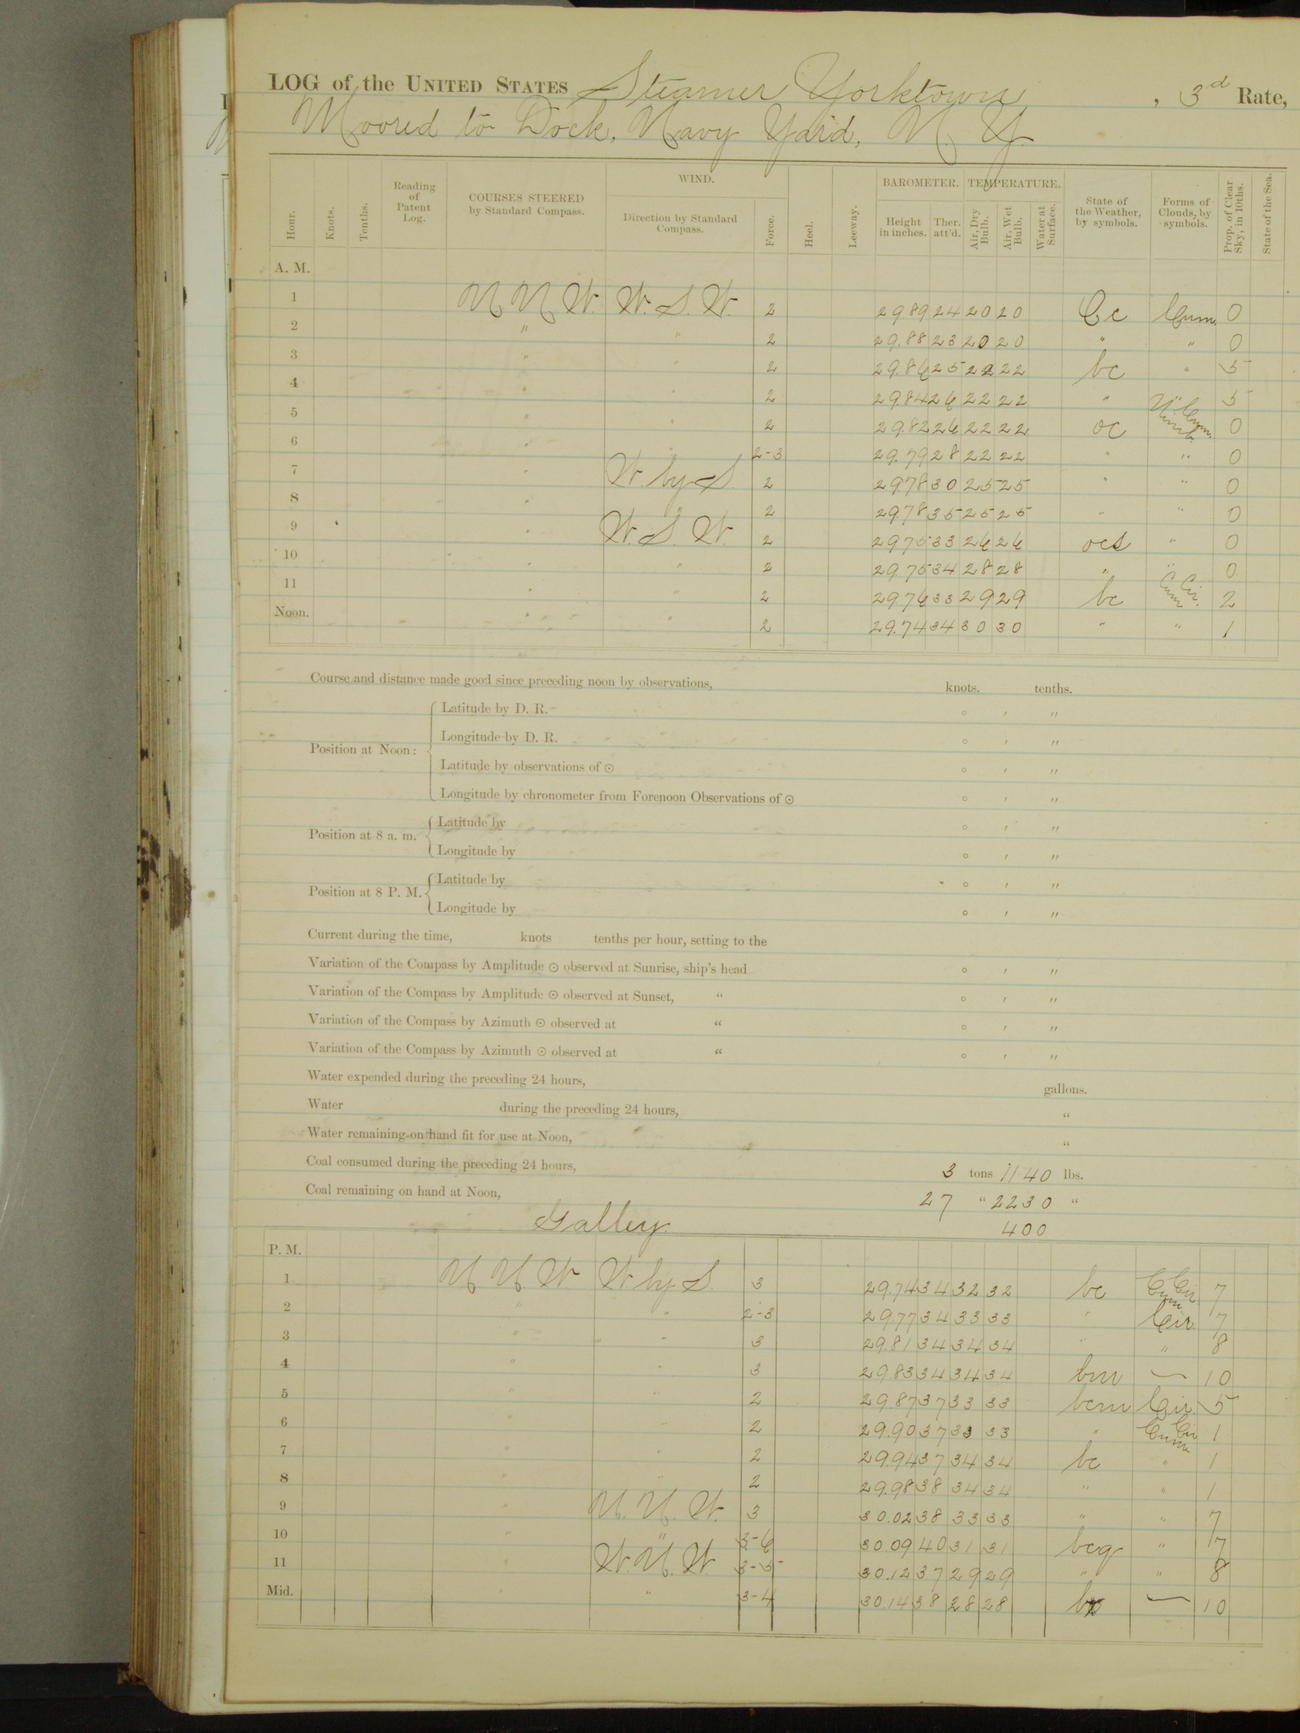 LOG of the UNITED STATES Steamer Yorktown, 3rd Rate,
Moored to Dock, Navy Yard, N. Y.
Hour. Knots. Tenths. Reading of Patent Log. COURSES STEERED by Standard Compass. WIND. Direction by Standard Compass. Force. Heel. Leeway. BAROMETER. Height in inches. Ther. att'd. TEMPERATURE. Air, Dry Bulb. Air, Wet Bulb. Water at Surface. State of the Weather, by symbols. Forms of Clouds, by symbols. Prop. of Clear Sky, in 10ths. State of the Sea.
A. M.
1 N N W. W. S. W. 2 29.89 24 20 20 Cum. 0
2 " " 2 29.88 23 20 20 " " 0
3 " " 2 29.86 25 22 22 bc " 5
4 " " 2 29.84 26 22 22 " " 5
5 " " 2 29.82 26 22 22 oc Cum. Nimb. 0
6 " 2-3 29.79 28 22 22 " " 0
7 " W. by S. 2 29.78 30 25 25 " " 0
8 " 2 29.78 35 25 25 " " 0
9 " W. S. W. 2 29.75 33 26 26 ocs " 0
10 " " 2 29.75 34 28 28 " " 0
11 " " 2 29.76 33 29 29 bc Cir. Cum. 2
Noon. " " 2 29.74 34 30 30 " " 1
Course and distance made good since preceding noon by observations, knots. tenths.
Position at Noon: Latitude by D. R. ° ′ ″
Longitude by D. R. ° ′ ″
Latitude by observations of ⊙ ° ′ ″
Longitude by chronometer from Forenoon Observations of ⊙ ° ′ ″
Position at 8 a. m. Latitude by ° ′ ″
Longitude by ° ′ ″
Position at 8 P. M. Latitude by ° ′ ″
Longitude by ° ′ ″
Current during the time, knots tenths per hour, setting to the
Variation of the Compass by Amplitude ⊙ observed at Sunrise, ship's head ° ′ ″
Variation of the Compass by Amplitude ⊙ observed at Sunset, " ° ′ ″
Variation of the Compass by Azimuth ⊙ observed at " ° ′ ″
Variation of the Compass by Azimuth ⊙ observed at " ° ′ ″
Water expended during the preceding 24 hours, gallons.
Water during the preceding 24 hours, "
Water remaining on hand fit for use at Noon, "
Coal consumed during the preceding 24 hours, 3 tons 1140 lbs.
Coal remaining on hand at Noon, 27 " 2230 "
Galley 400
P. M.
1 N N W. W by S. 3 29.74 34 32 32 bc Cir Cum 7
2 " " 2-3 29.77 34 33 33 " Cir 7
3 " " 3 29.81 34 34 34 " " 8
4 " " 3 29.83 34 34 34 bm — 10
5 " " 2 29.87 37 33 33 bcm Cir 5
6 " 2 29.90 37 33 33 " Cir Cum 1
7 " 2 29.94 37 34 34 bc " 1
8 " " 2 29.98 38 34 34 " " 1
9 " N. N. W. 3 30.02 38 33 33 " " 7
10 " " 3-6 30.09 40 31 31 bcq " 7
11 " W. N. W. 3-5 30.12 37 29 29 " " 8
Mid. " " 3-4 30.14 38 28 28 — 10